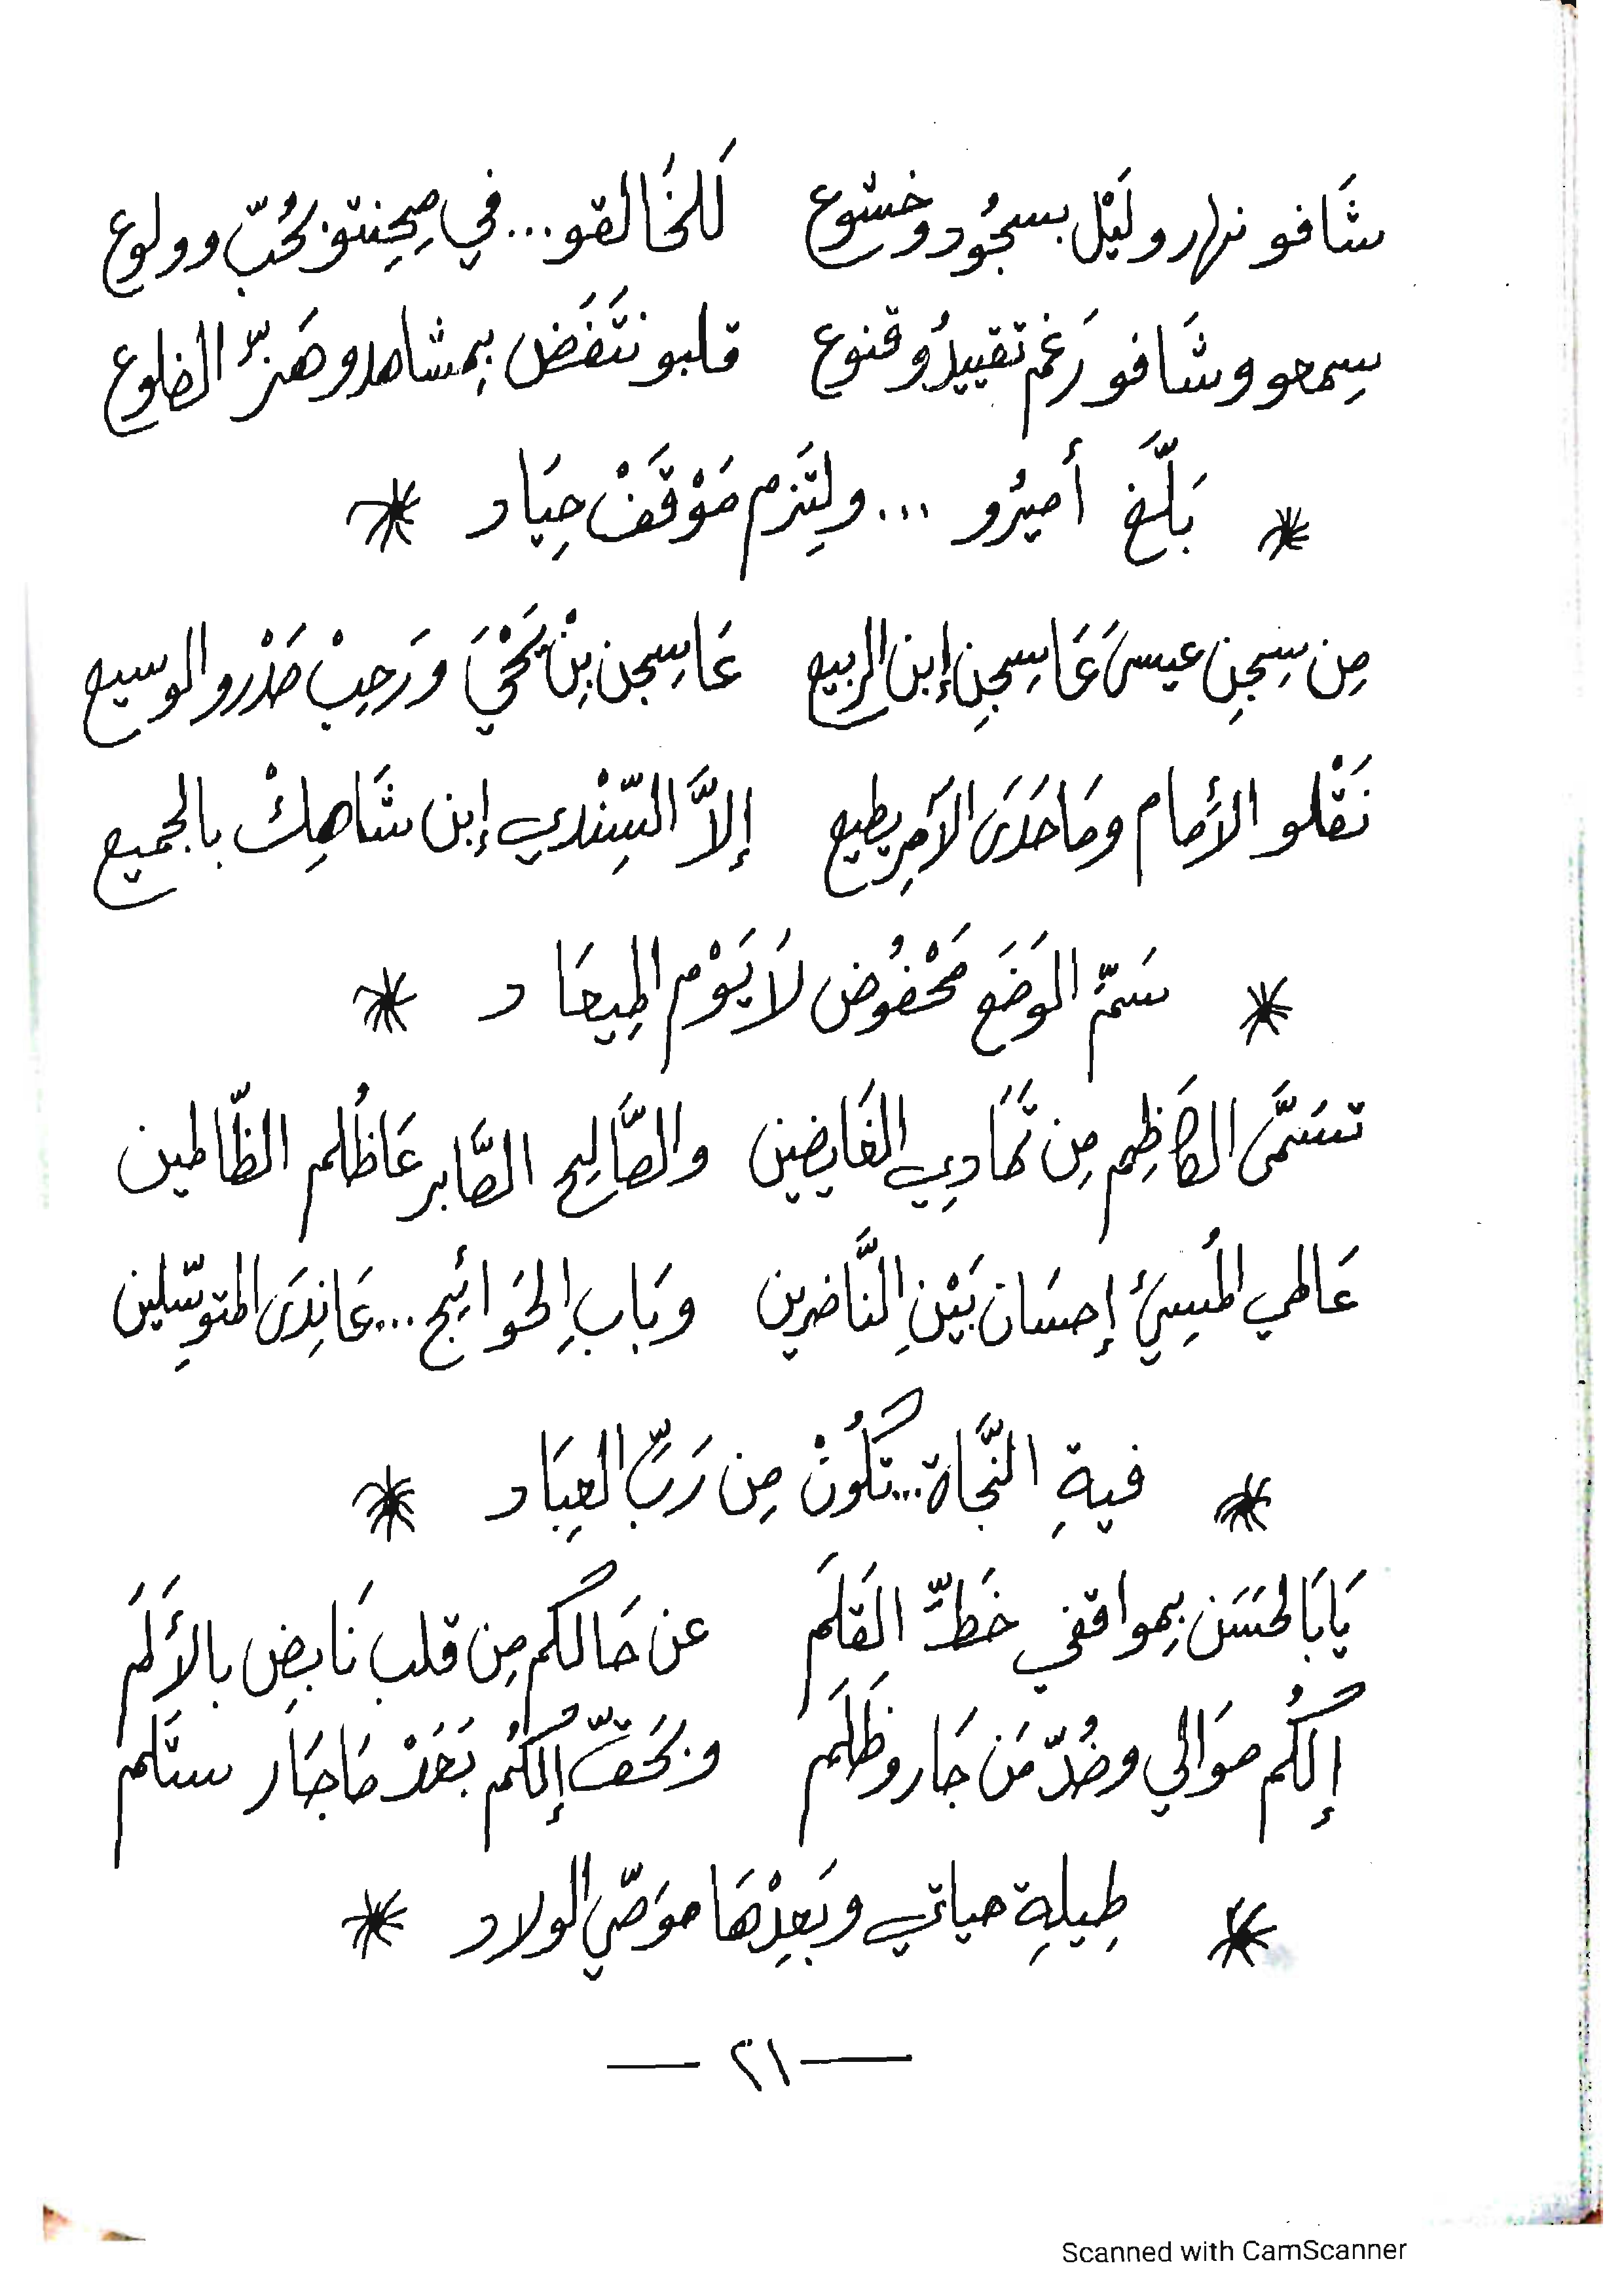 شَافو نهار و لَيْل بسجُود وخشوع لَلخَالقو... في مِحِنتو بحُبّ وولوع
سِمعو وشَافو رَغم تقييدُو قنوع قلبو نتَفَض بِمشاهدو هَزّ الضلوع
* بَلَّغ أميرُو ... ولِتَزم مَوْقَفْ حِيَاد *
مِن سِجنِ عيسىَ عَا سِجنِ إبن الربيع عَا سِجن بِنْ يَحْيَ ورَحِبْ صَدْرو الوسيع
نَقْلو الأمام ومَا حَدَىَ الأَمِر يطيع إلاَّ السِّنْدي إبن شَاهِكْ بالجميع
* سَمّم الوَضَع مَحْفُوض لاَ يَوْم المِيعَاد *
تسَمَّى الكَاظِم مِن تمَادِي الغَايضين والصَّالِح الصَّابر عَا ظُلم الظّالمين
عَالمي المُسِيءُ إحسَان بَيْنِ النَّاضرين وبَابِ الحَوائِج... عَا نِدَىَ المتوسِّلين
* فيةِ النَّجَاة... تكُونْ مِن رَبِّ العِبَاد *
يَابَالحسَن بِمواقفي خَطَّ القَلَم عن حَالكم مِن قلب نَابضِ بالأَلَم
إلكُم مَوَالي وضُدّ مَن جَار وظَلَم وبحَقّ إلكُم بَعَدْ مَا جَار ستَلم
* طِيلةِ حياتي وبَعِدْهَا موَصّي الولاد *
— ٢١ —
Scanned with CamScanner